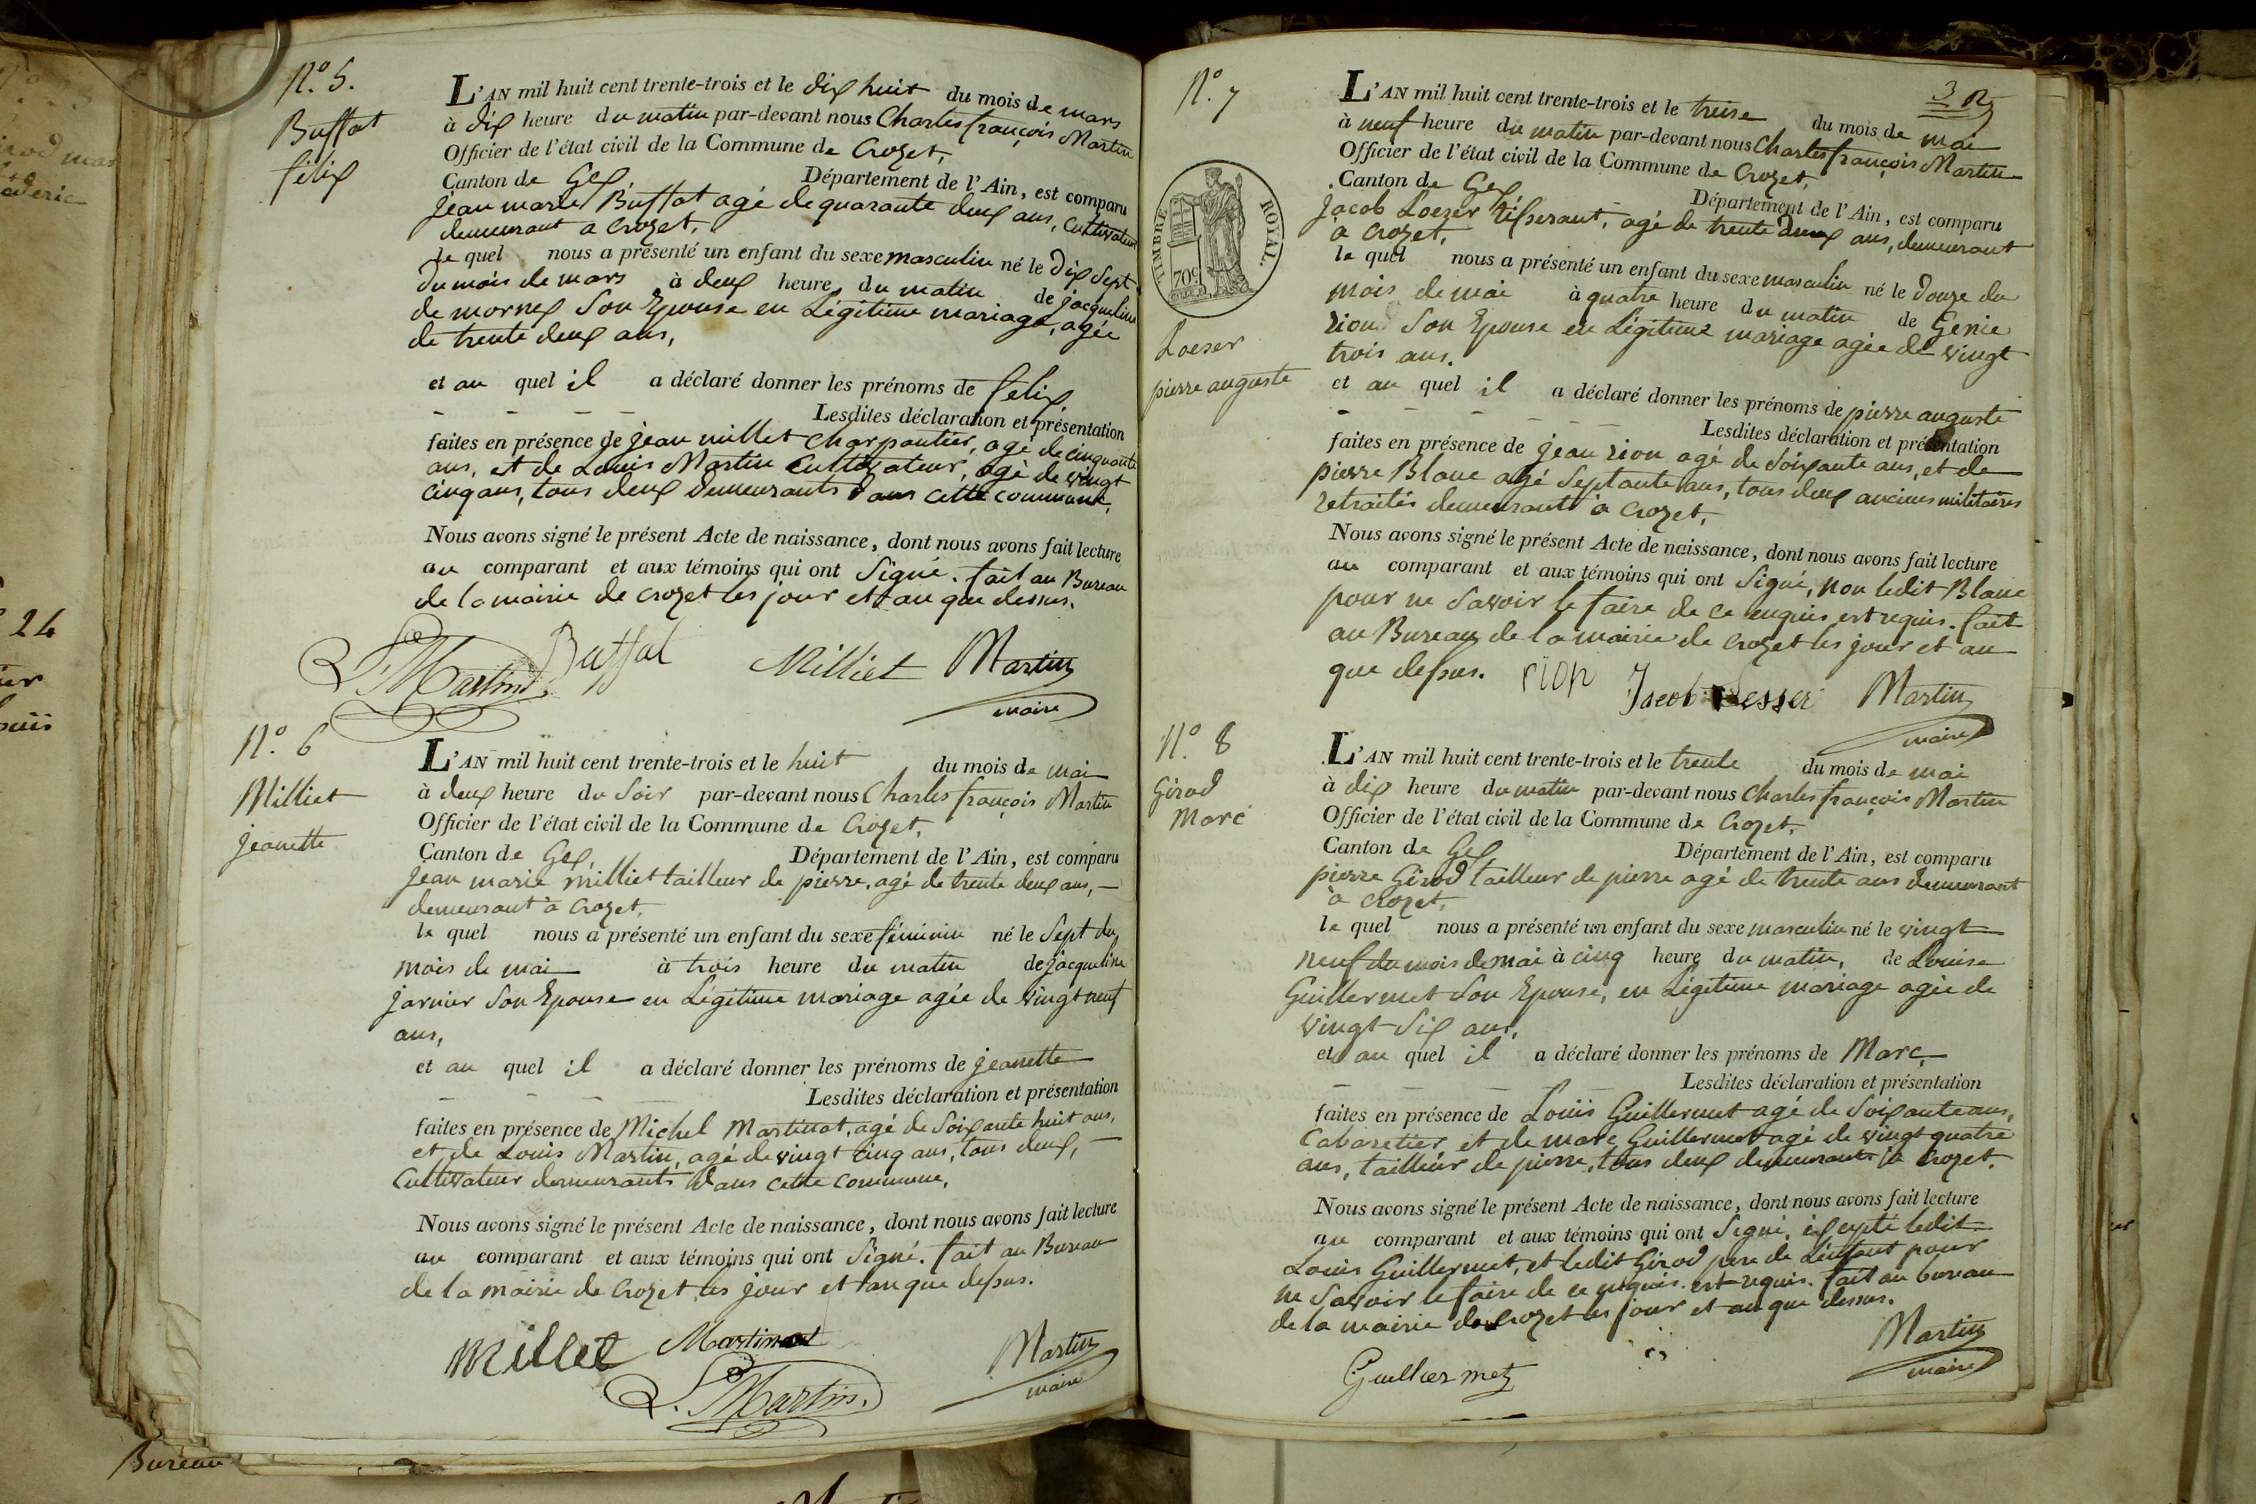 N.o 5.
Buffat
félix
L'AN mil huit cent trente-trois et le dix huit du mois de mars
à dix heure du matin par-devant nous Charles françois Martin
Officier de l'état civil de la Commune de Crozet,
Canton de Gex, Département de l'Ain, est comparu
jean marie Buffat agé de quarante deux ans, cultivateur
demeurant a crozet,
le quel nous a présenté un enfant du sexe masculin né le dix sept
du mois de mars à deux heure du matin de jacqueline
de mornex son Epouse en Légitime mariage, agée
de trente deux ans,
et au quel il a déclaré donner les prénoms de félix
Lesdites déclaration et présentation
faites en présence de jean millet charpantier, agé de cinquante
ans, et de Louis Martin Cultivateur, agé de vingt
cinq ans, tous deux demeurants dans cette commune,
Nous avons signé le présent Acte de naissance, dont nous avons fait lecture
au comparant et aux témoins qui ont Signé. fait au Bureau
de la mairie de crozet les jour et an que dessus.
L. Martin. Buffat Milliet Martin
maire
N.o 6
Milliet
jeanette
L'AN mil huit cent trente-trois et le huit du mois de mai
à deux heure du Soir par-devant nous Charles françois Martin
Officier de l'état civil de la Commune de Crozet,
Canton de Gex, Département de l'Ain, est comparu
jean marie milliet tailleur de pierre, agé de trente deux ans,
demeurant à crozet,
le quel nous a présenté un enfant du sexe féminin né le Sept du
mois de mai à trois heure du matin de jacqueline
jarnier son Epouse en Légitime mariage agée de vingt neuf
ans,
et au quel il a déclaré donner les prénoms de jeanette
Lesdites déclaration et présentation
faites en présence de Michel Martinat, agé de soixante huit ans,
et de Louis Martin, agé de vingt cinq ans, tous deux,
Cultivateur demeurants dans cette commune,
Nous avons signé le présent Acte de naissance, dont nous avons fait lecture
au comparant et aux témoins qui ont Signé. fait au Bureau
de la mairie de Crozet, les jour et an que dessus.
Millet Martinat Martin
L. Martin. maire
3
N.o 7
TIMBRE ROYAL.
70c
Loeser
pierre auguste
L'AN mil huit cent trente-trois et le treise du mois de mai
à neuf heure du matin par-devant nous Charles françois Martin
Officier de l'état civil de la Commune de Crozet,
Canton de Gex Département de l'Ain, est comparu
jacob Loezer tisserant, agé de trente deux ans, demeurant
à crozet,
le quel nous a présenté un enfant du sexe masculin né le douze du
mois de mai à quatre heure du matin de Genie
rion son Epouse en Légitime mariage agée de vingt
trois ans.
et au quel il a déclaré donner les prénoms de pierre auguste
Lesdites déclaration et présentation
faites en présence de jean rion agé de soixante ans, et de
pierre Blanc agé septante ans, tous deux anciens militaires
retraités demeurants à crozet,
Nous avons signé le présent Acte de naissance, dont nous avons fait lecture
au comparant et aux témoins qui ont Signé, non ledit Blanc
pour ne savoir le faire de ce enquis est requis. fait
au Bureau de la mairie de crozet les jour et an
que dessus. rion Jacob Martin
maire
N.o 8
Girod
Marc
L'AN mil huit cent trente-trois et le trente du mois de mai
à dix heure du matin par-devant nous Charles françois Martin
Officier de l'état civil de la Commune de Crozet,
Canton de Gex Département de l'Ain, est comparu
pierre Girod tailleur de pierre agé de trente ans demeurant
à crozet,
le quel nous a présenté un enfant du sexe masculin né le vingt
neuf du mois de mai à cinq heure du matin, de Louise
Guillermet son Epouse, en Légitime mariage agée de
vingt six ans,
et au quel il a déclaré donner les prénoms de Marc,
Lesdites déclaration et présentation
faites en présence de Louis Guillermet agé de soixante ans,
Cabaretier, et de marc Guillermet agé de vingt quatre
ans, tailleur de pierre, tous deux demeurants à Crozet.
Nous avons signé le présent Acte de naissance, dont nous avons fait lecture
au comparant et aux témoins qui ont Signé, éxcepté ledit
Louis Guillermet, et ledit Girod pere de L'enfant pour
ne savoir le faire de ce enquis est requis. fait au bureau
de la mairie de crozet les jour et an que dessus.
Guillermet Martin
maire
24
Bureau